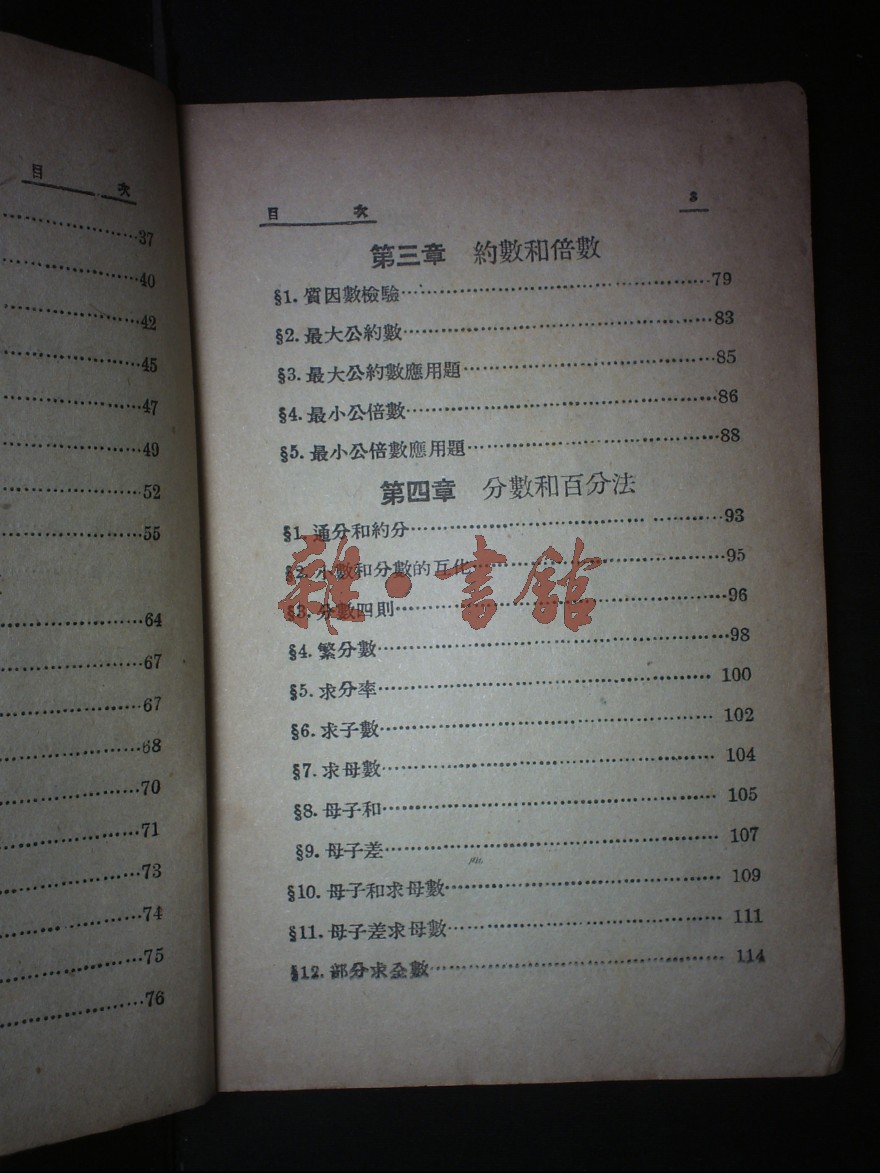 目 次
37
40
42
45
47
49
52
55
64
67
67
68
70
71
73
74
75
76
目 次 3
第三章 約數和倍數
§1. 質因數檢驗 79
§2. 最大公約數 83
§3. 最大公約數應用題 85
§4. 最小公倍數 86
§5. 最小公倍數應用題 88
第四章 分數和百分法
§1. 通分和約分 93
§2. 小數和分數的互化 95
§3. 分數四則 96
§4. 繁分數 98
§5. 求分率 100
§6. 求子數 102
§7. 求母數 104
§8. 母子和 105
§9. 母子差 107
§10. 母子和求母數 109
§11. 母子差求母數 111
§12. 部分求全數 114
雜·書館